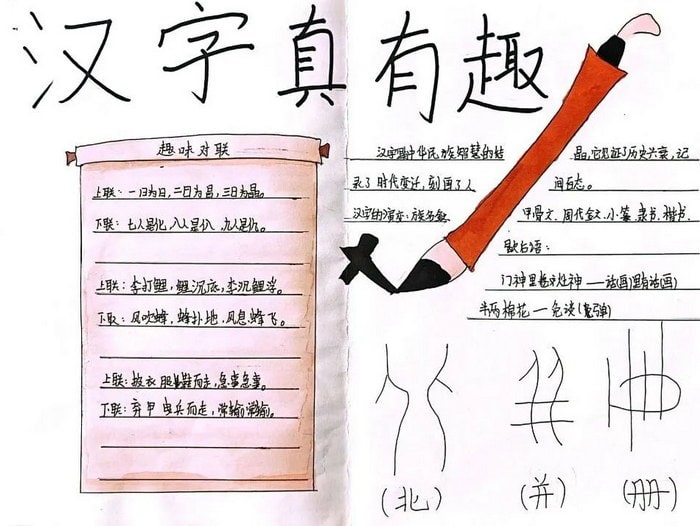 汉字真有趣
趣味对联
上联：一日为日，二日为昌，三日为晶。
下联：七人是化，八人是仈，九人是仇。
上联：李打鲤，鲤沉底，李沉鲤浮。
下联：风吹蜂，蜂扑地，风息蜂飞。
上联：披衣而走，急事急
下联：弃甲曳兵而走，常输常输。
汉字是中华民族智慧的结晶，它见证了历史兴衰，记
录了时代变迁，刻画了人间百态。
汉字的演变：甲骨文、周代金文、小篆、隶书、楷书。
歇后语：
门神里卷灶神——话(画)里有话(画)
半两棉花——免谈(弹)
(北) (并) (册)